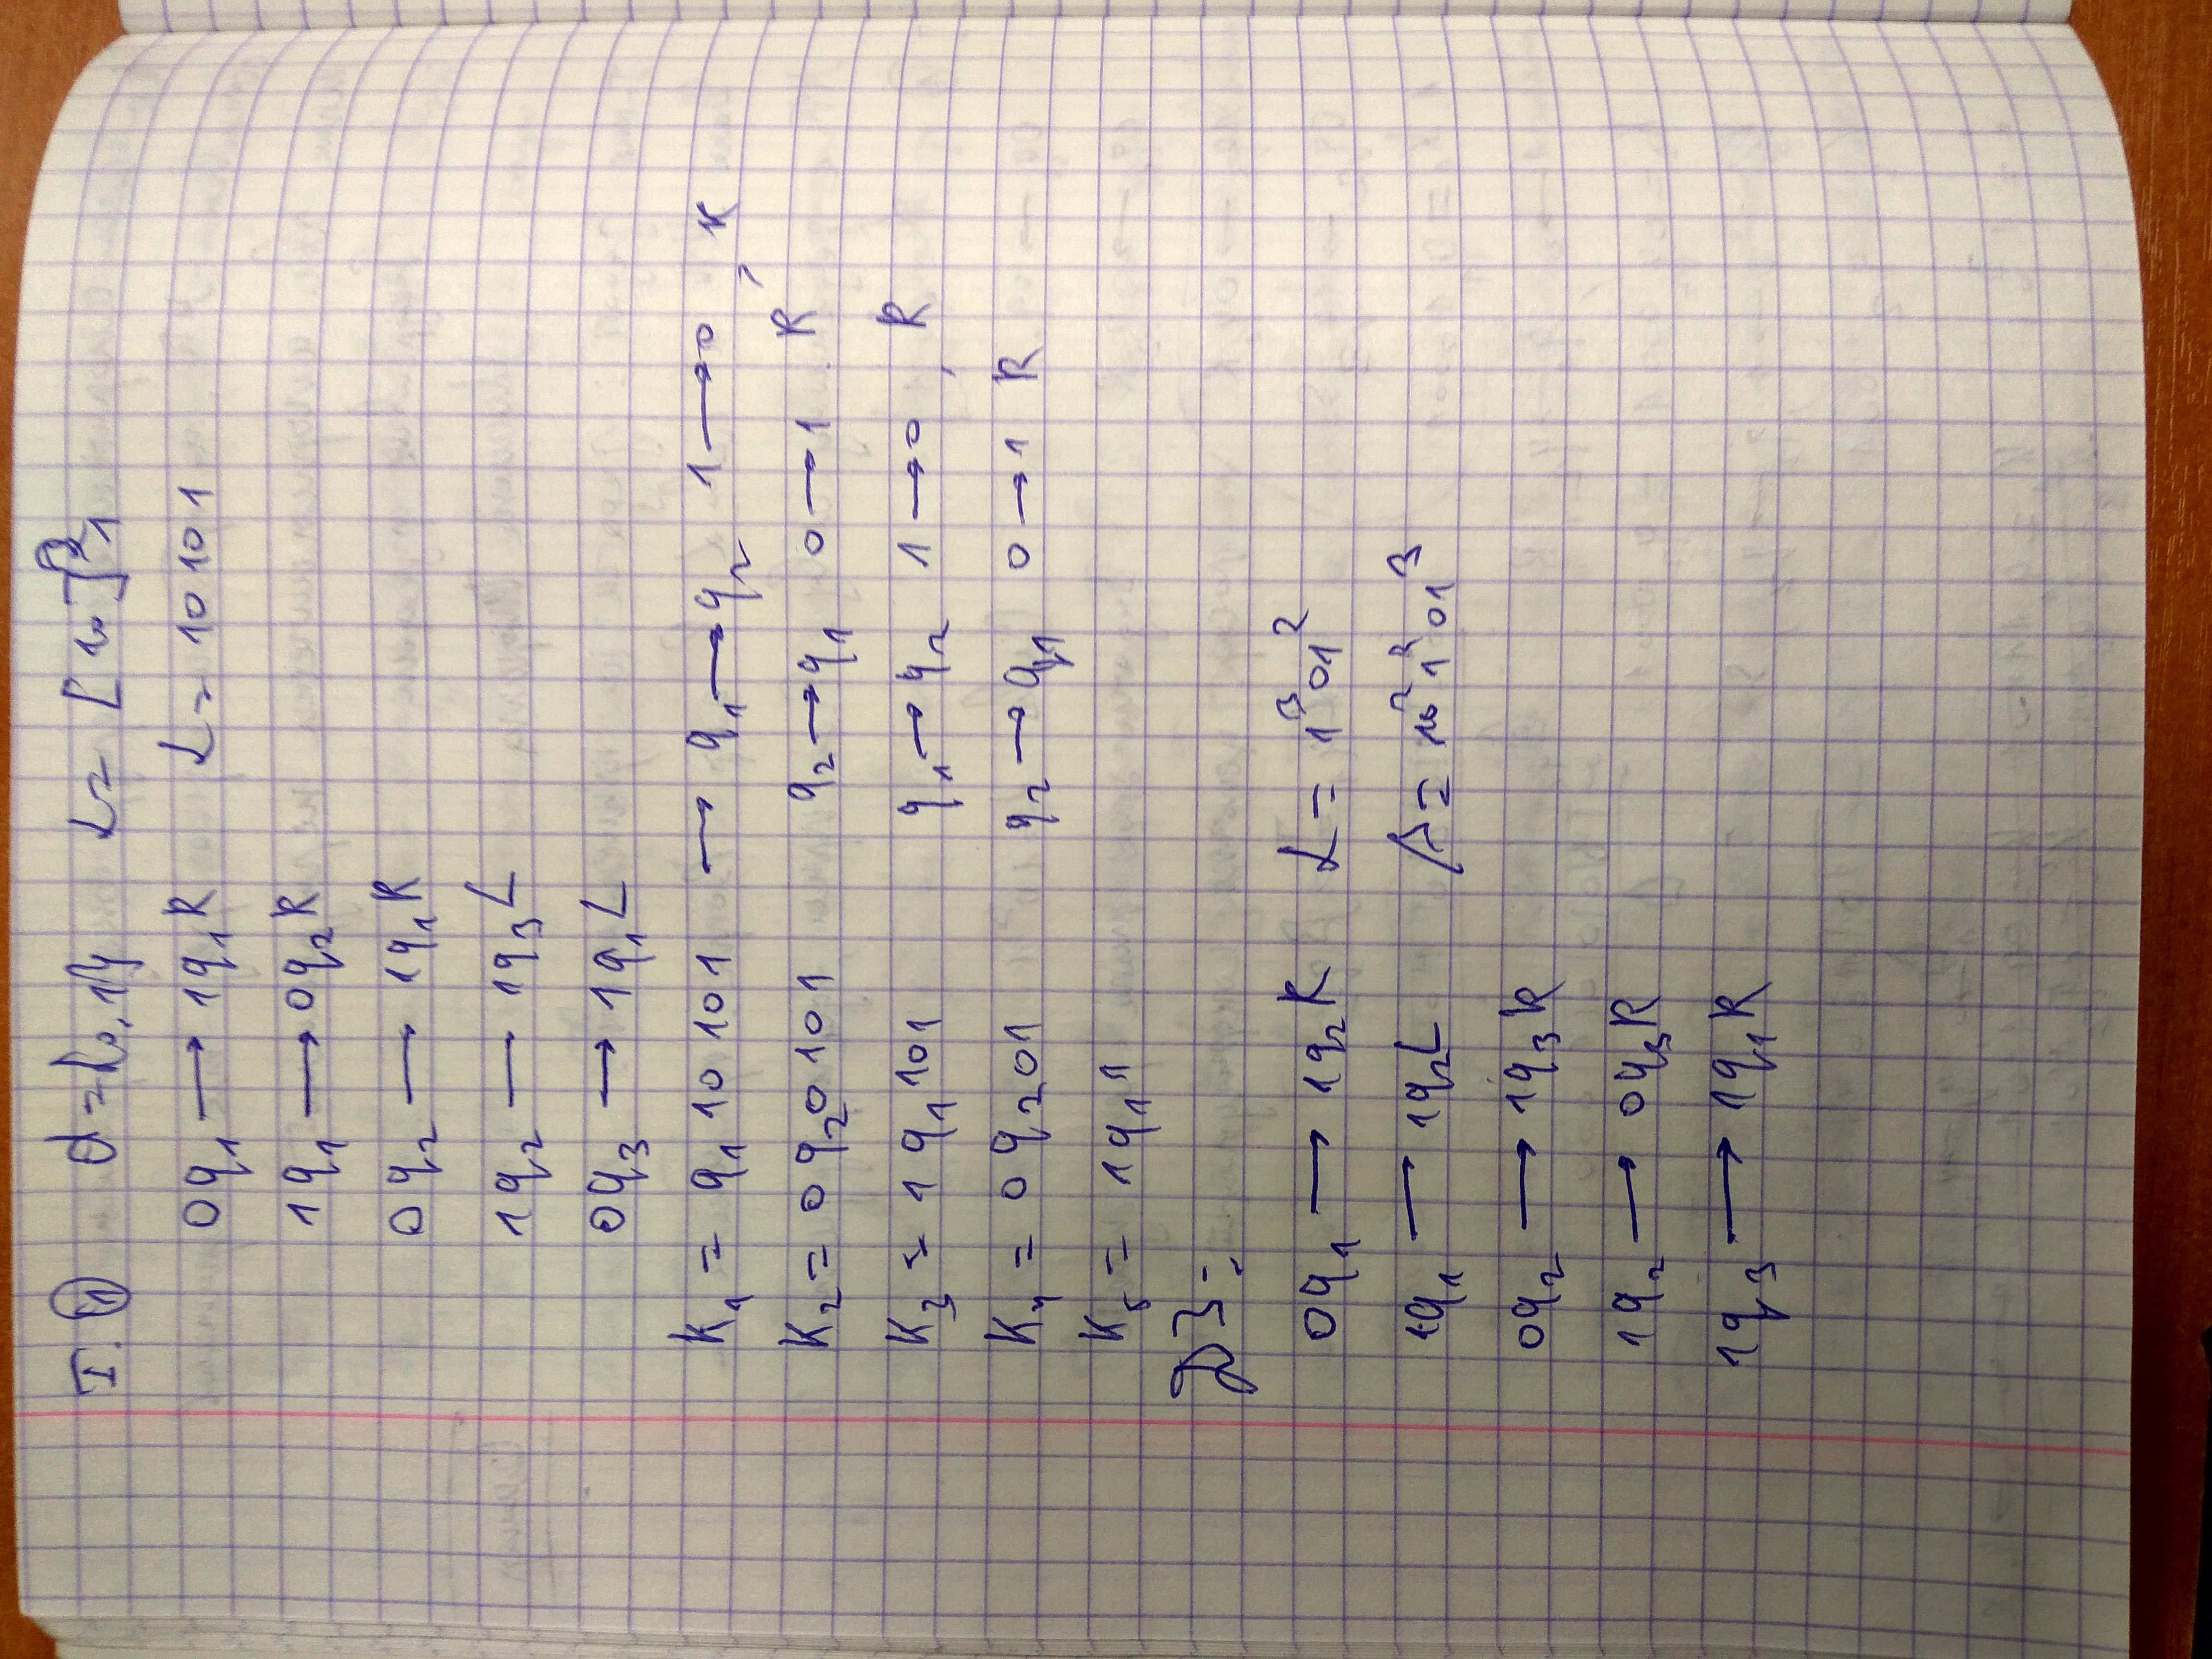 I. ① A = {0,1} L = [10]²1
0q₁ → 1q₁R L = 10101
1q₁ → 0q₂R
0q₂ → 1q₁R
1q₂ → 1q₃L
0q₃ → 1q₁L
K₁ = q₁10101 → q₁→q₂ 1→0, R
K₂ = 0q₂0101 q₂→q₁ 0→1 R
K₃ = 1q₁101 q₁→q₂ 1→0, R
K₄ = 0q₂01 q₂→q₁ 0→1 R
K₅ = 1q₁1
ДЗ:
0q₁ → 1q₂R L = 1³01²
1q₁ → 1q₂L
0q₂ → 1q₃R
1q₂ → 0q₃R
1q₃ → 1q₁R